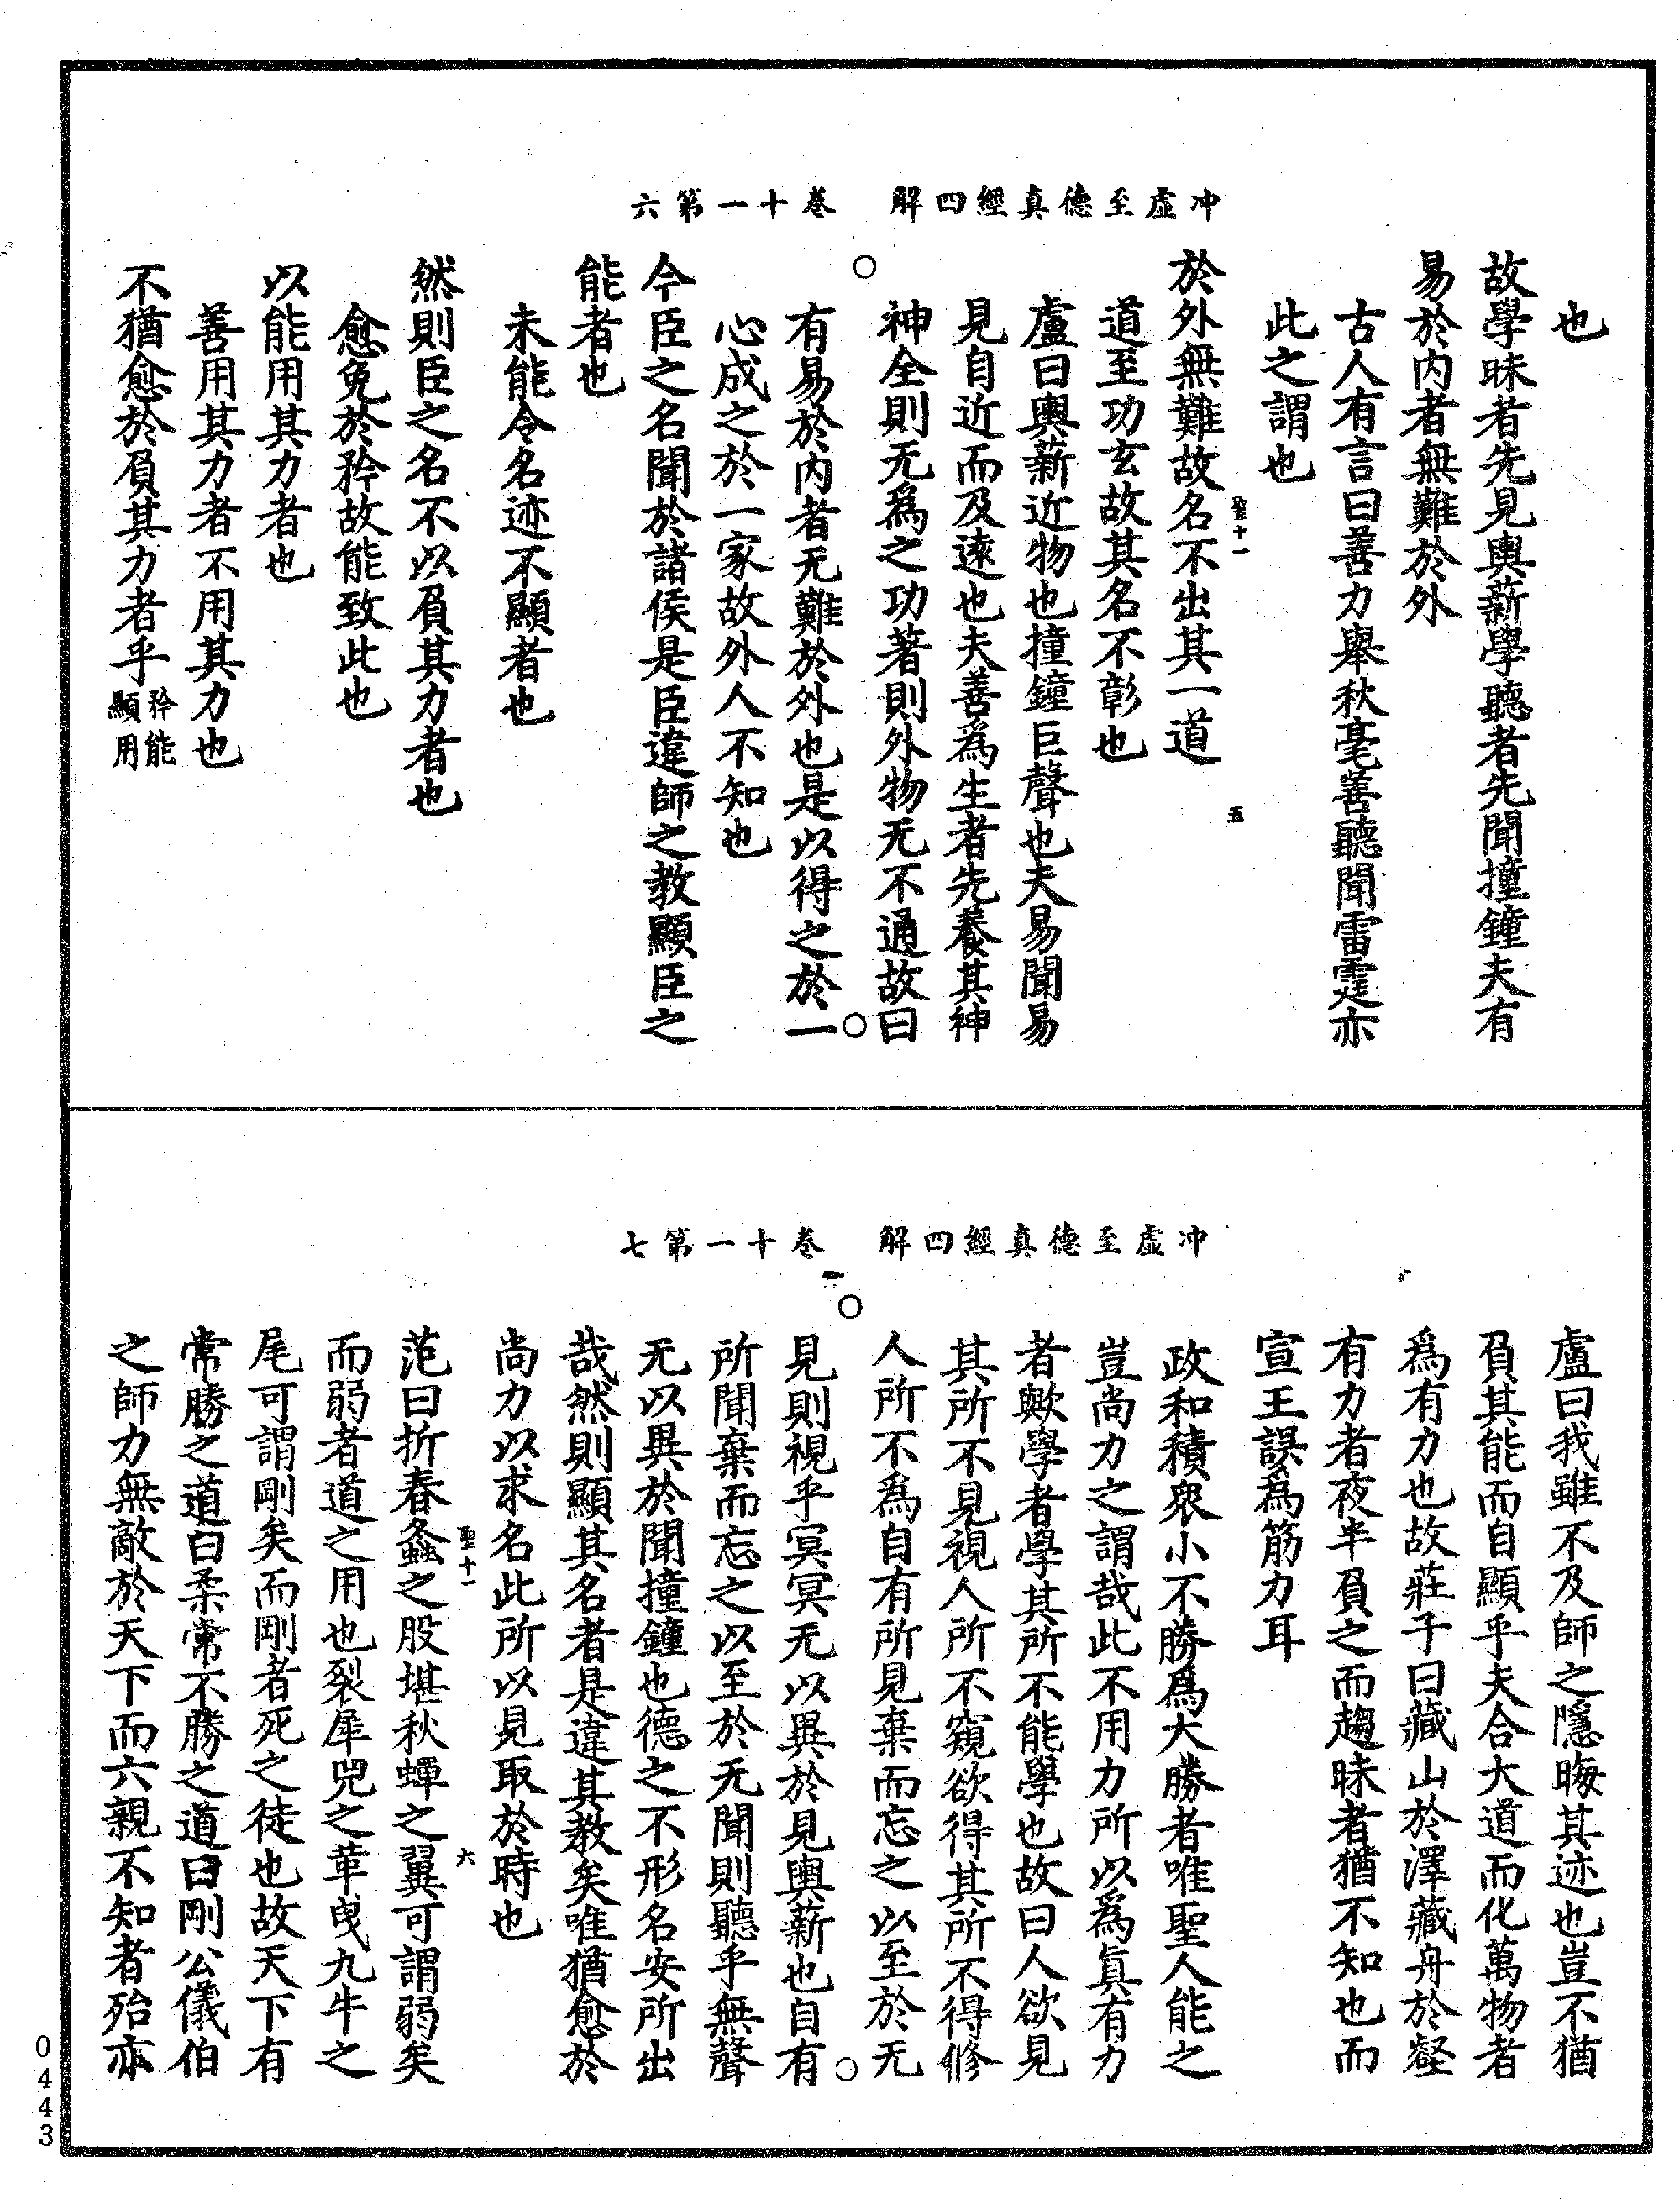 冲虛至德真經四解　卷十一第六
也
故學眎者先見輿薪學聽者先聞撞鐘夫有
易於內者無難於外
古人有言曰善力舉秋毫善聽聞雷霆亦
此之謂也
於外無難故名不出其一道
聖十一　五
道至功玄故其名不彰也
盧曰輿薪近物也撞鐘巨聲也夫易聞易
見自近而及遠也夫善為生者先養其神
神全則无為之功著則外物无不通故曰
有易於內者无難於外也是以得之於一
心成之於一家故外人不知也
今臣之名聞於諸侯是臣違師之教顯臣之
能者也
未能令名迹不顯者也
然則臣之名不以負其力者也
愈免於矜故能致此也
以能用其力者也
善用其力者不用其力也
不猶愈於負其力者乎矜能顯用
冲虛至德真經四解　卷十一第七
盧曰我雖不及師之隱晦其迹也豈不猶
負其能而自顯乎夫合大道而化萬物者
為有力也故莊子曰藏山於澤藏舟於壑
有力者夜半負之而趨眛者猶不知也而
宣王誤為筋力耳
政和積衆小不勝為大勝者唯聖人能之
豈尚力之謂哉此不用力所以為真有力
者歟學者學其所不能學也故曰人欲見
其所不見視人所不窺欲得其所不得修
人所不為自有所見棄而忘之以至於无
見則視乎冥冥无以異於見輿薪也自有
所聞棄而忘之以至於无聞則聽乎無聲
无以異於聞撞鐘也德之不形名安所出
哉然則顯其名者是違其教矣唯猶愈於
尚力以求名此所以見取於時也
范曰折春螽之股堪秋蟬之翼可謂弱矣
聖十一　六
而弱者道之用也裂犀兕之革曳九牛之
尾可謂剛矣而剛者死之徒也故天下有
常勝之道曰柔常不勝之道曰剛公儀伯
之師力無敵於天下而六親不知者殆亦
0443